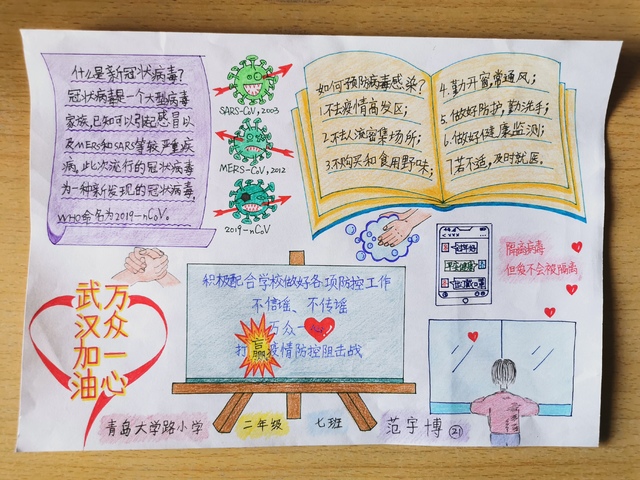 什么是新冠状病毒?
冠状病毒是一个大型病毒
家族,已知可以引起感冒以
及MERS和SARS等较严重疾
病,此次流行的冠状病毒
为一种新发现的冠状病毒,
WHO命名为2019-nCoV。
SARS-CoV,2003
MERS-CoV,2012
2019-nCoV
如何预防病毒感染?
1.不去疫情高发区;
2.不去人流密集场所;
3.不购买和食用野味;
4.勤开窗常通风;
5.做好防护,勤洗手;
6.做好健康监测;
7.若不适,及时就医。
隔离病毒
但爱不会被隔离
万众一心
武汉加油
积极配合学校做好各项防控工作
不信瑶、不传瑶
万众一心
打赢疫情防控阻击战
青岛大学路小学
二年级
七班
范宇博
21